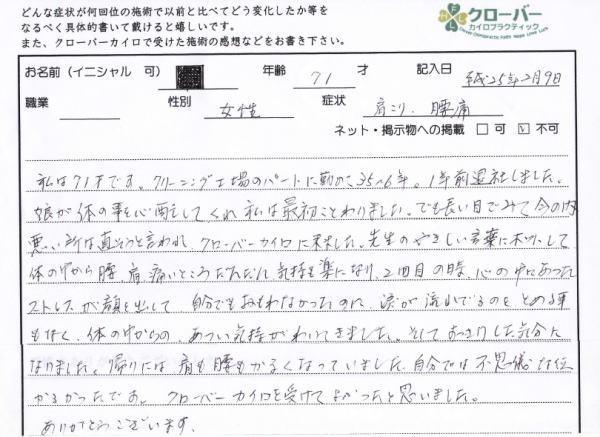 どんな症状が何回位の施術で以前と比べてどう変化したか等を
なるべく具体的書いて戴けると嬉しいです。
また、クローバーカイロで受けた施術の感想などをお書き下さい。
クローバー
カイロプラクティック
お名前(イニシャル 可) 年齢 71 才 記入日 平成25年2月9日
職業 性別 女性 症状 肩こり、腰痛
ネット・掲示物への掲載 □ 可 ☑ 不可
私は71才です。クリーニング工場のパートに勤めて35〜6年。1年前退社しました。
娘が体の事を心配してくれ私は最初ことわりました。でも長い目でみて今の内
悪い所は直そうと言われ クローバーカイロに来ました。先生のやさしい言葉にホッとして
体の中から腰、肩、痛いところだんだん気持も楽になり、2回目の時、心の中にあった
ストレスが顔を出して 自分でもおもわなかったのに、涙が流れでるのを とめる事
もなく、体の中からの、あつい気持がわいてきました。そして すっきりした気分に
なりました。帰りには 肩も腰もかるくなっていました。自分では不思儀な位
かるかったです。クローバーカイロを受けて よかったと思いました。
ありがとうございます。